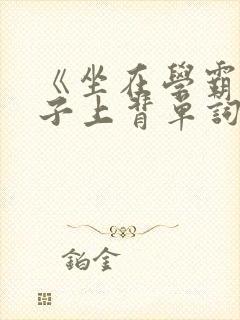 《坐在學霸
子上背單詞
鉑金